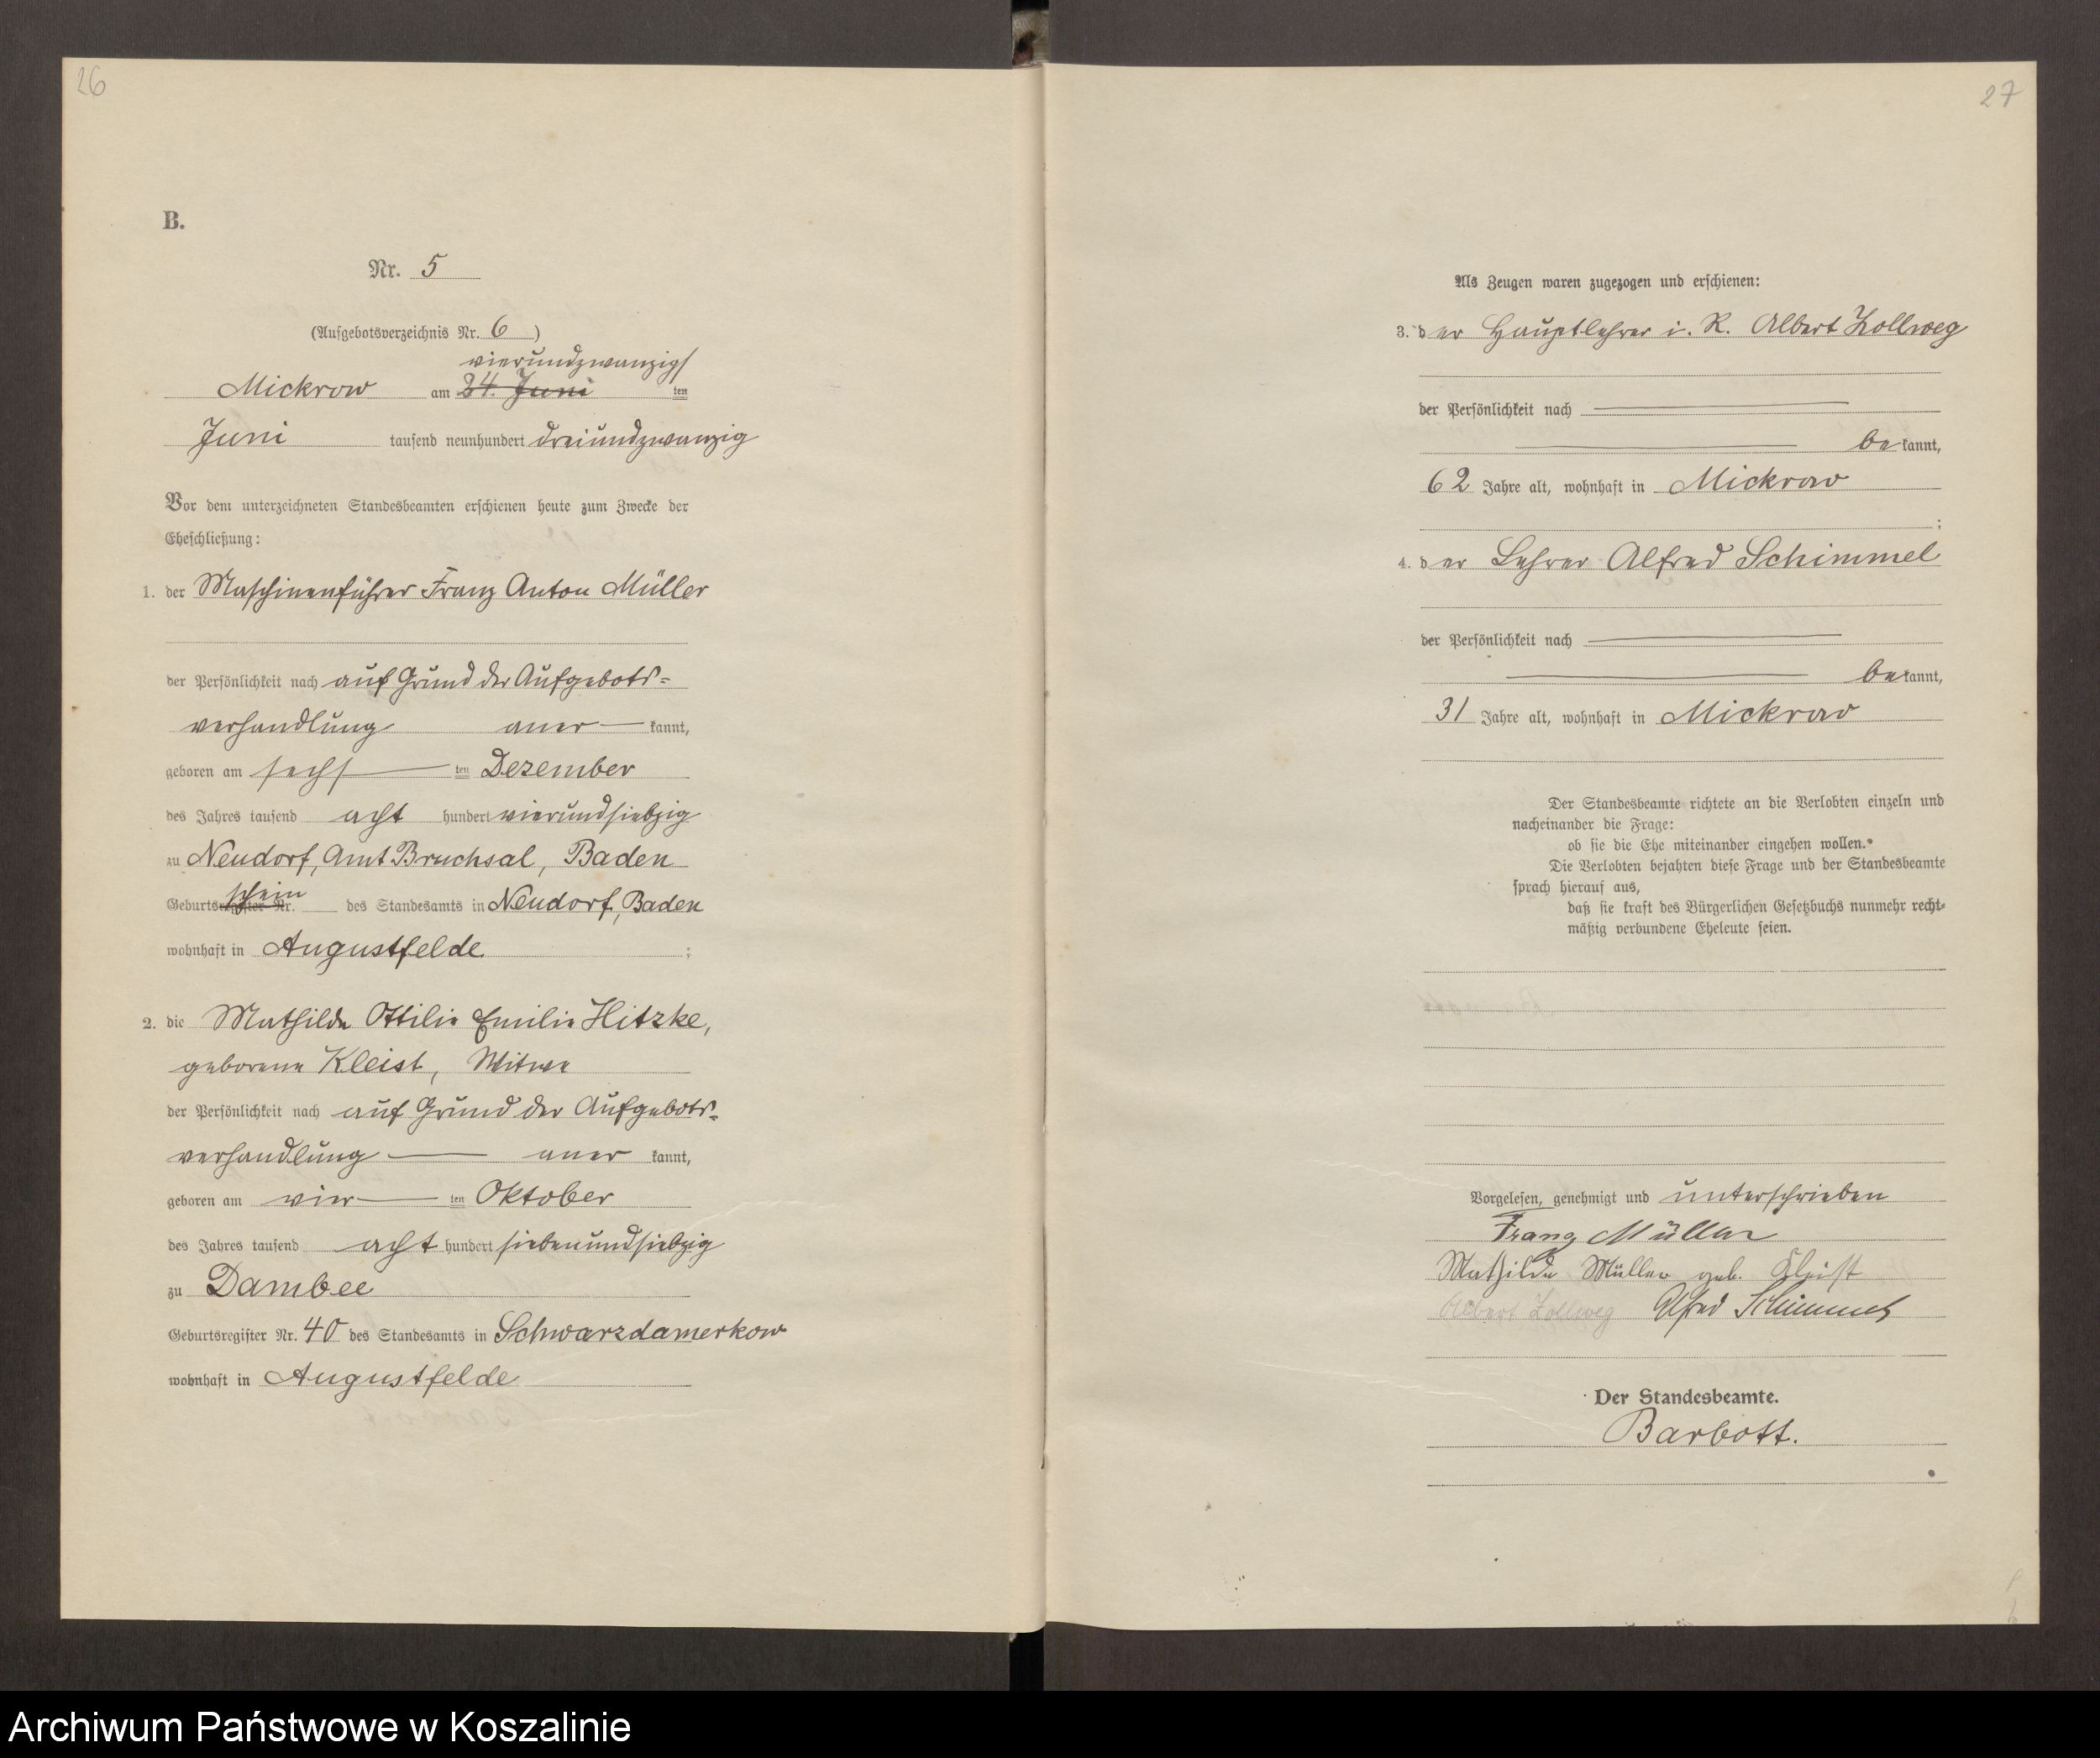 26
B.
Nr. 5
(Aufgebotsverzeichnis Nr. 6)
vierundzwanzigs
Mickrow am 24. Juni ten
Juni tausend neunhundert dreiundzwanzig
Vor dem unterzeichneten Standesbeamten erschienen heute zum Zwecke der
Eheschließung:
1. der Maschinenführer Franz Anton Müller
der Persönlichkeit nach auf Grund der Aufgebots-
verhandlung aner kannt,
geboren am sechs ten Dezember
des Jahres tausend acht hundert vierundsiebzig
zu Neudorf, Amt Bruchsal, Baden
schein
Geburtsregister Nr. des Standesamts in Neudorf, Baden
wohnhaft in Augustfelde ;
2. die Mathilde Ottilie Emilie Hitzke,
geborene Kleist, Witwe
der Persönlichkeit nach auf Grund der Aufgebots-
verhandlung aner kannt,
geboren am vier ten Oktober
des Jahres tausend acht hundert siebenundsiebzig
zu Dambee
Geburtsregister Nr. 40 des Standesamts in Schwarzdamerkow
wohnhaft in Augustfelde
27
Als Zeugen waren zugezogen und erschienen:
3. der Hauptlehrer i. R. Albert Zollweg
der Persönlichkeit nach
be kannt,
62 Jahre alt, wohnhaft in Mickrow
;
4. der Lehrer Alfred Schimmel
der Persönlichkeit nach
be kannt,
31 Jahre alt, wohnhaft in Mickrow
Der Standesbeamte richtete an die Verlobten einzeln und
nacheinander die Frage:
ob sie die Ehe miteinander eingehen wollen.
Die Verlobten bejahten diese Frage und der Standesbeamte
sprach hierauf aus,
daß sie kraft des Bürgerlichen Gesetzbuchs nunmehr recht-
mäßig verbundene Eheleute seien.
Vorgelesen, genehmigt und unterschrieben
Franz Müller
Mathilde Müller geb. Kleist
Albert Zollweg Alfred Schimmel
Der Standesbeamte.
Barbott.
Archiwum Państwowe w Koszalinie